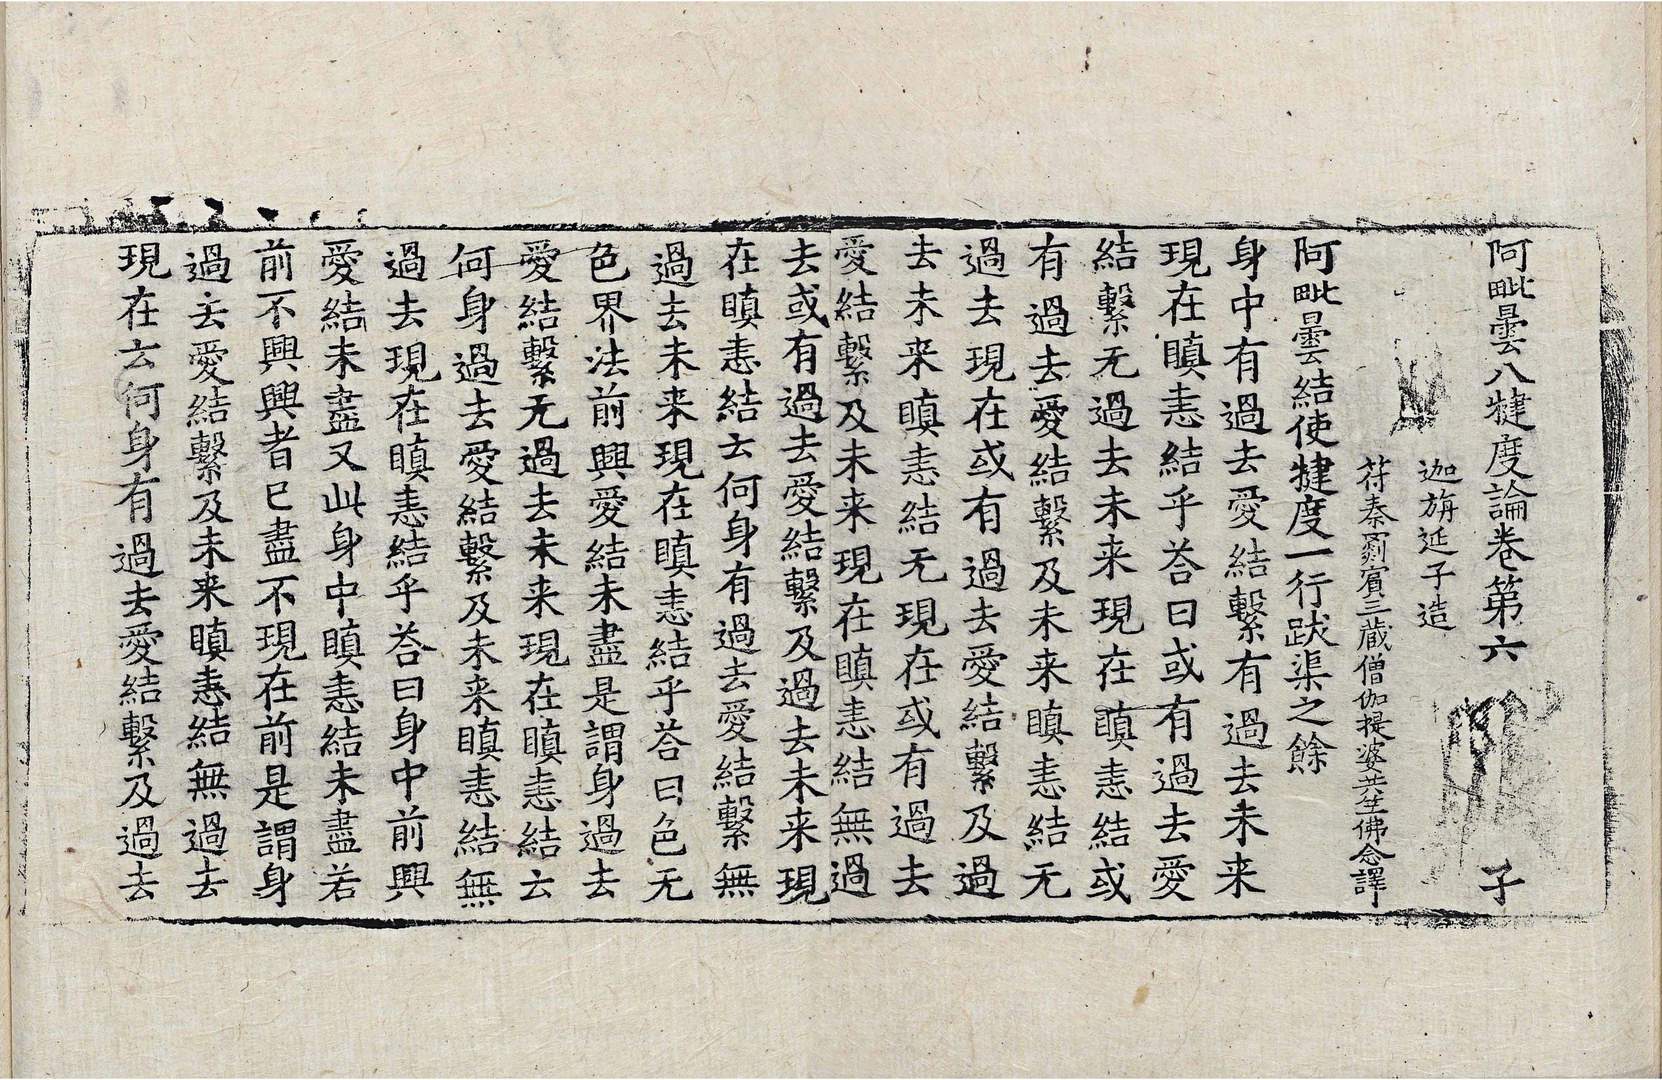 阿毗曇八揵度論卷第六　子
迦旃延子造
苻秦罽賓三藏僧伽提婆共竺佛念譯
阿毗曇結使揵度一行跋渠之餘
身中有過去愛結繫有過去未来
現在瞋恚結乎荅曰或有過去愛
結繫无過去未来現在瞋恚結或
有過去愛結繫及未来瞋恚結无
過去現在或有過去愛結繫及過
去未来瞋恚結无現在或有過去
愛結繫及未来現在瞋恚結無過
去或有過去愛結繫及過去未来現
在瞋恚結云何身有過去愛結繫無
過去未来現在瞋恚結乎荅曰色无
色界法前興愛結未盡是謂身過去
愛結繫无過去未来現在瞋恚結云
何身過去愛結繫及未来瞋恚結無
過去現在瞋恚結乎荅曰身中前興
愛結未盡又此身中瞋恚結未盡若
前不興興者已盡不現在前是謂身
過去愛結繫及未来瞋恚結無過去
現在云何身有過去愛結繫及過去